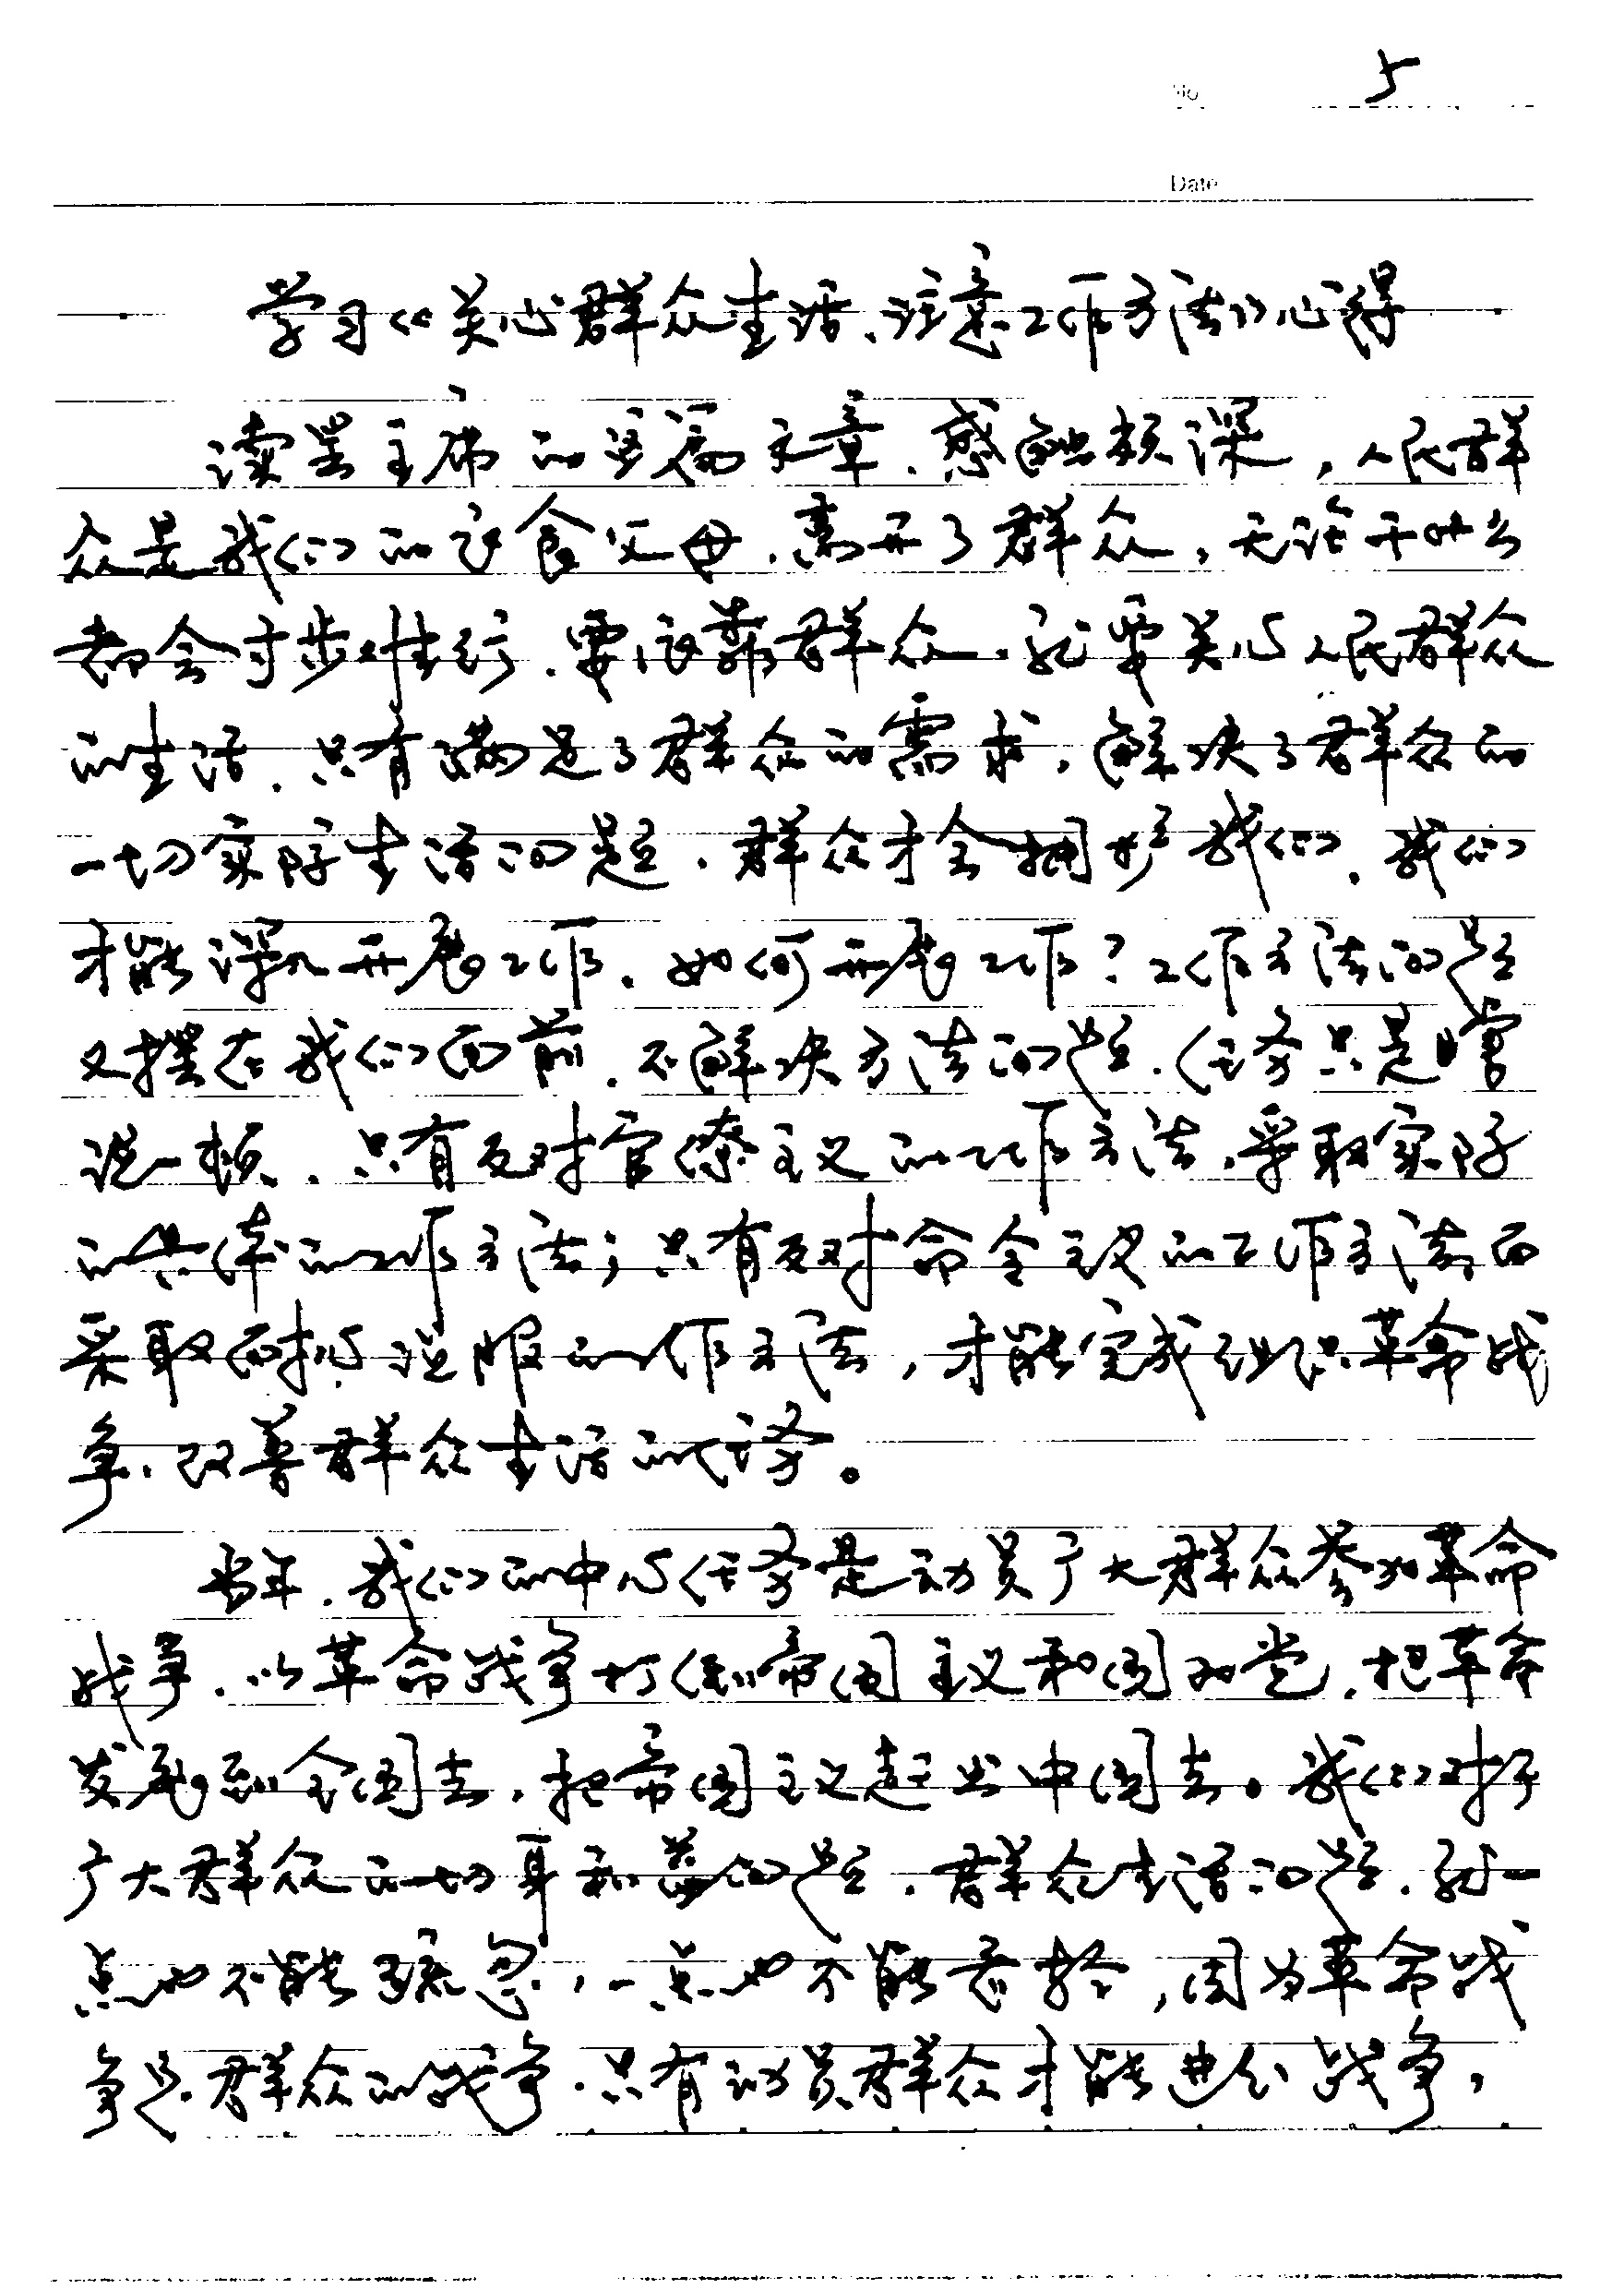 No 5
Date
学习《关心群众生活、注意工作方法》心得
读罢主席的这篇文章,感触颇深,人民群
众是我们的衣食父母,离开了群众,无论干什么
都会寸步难行,要依靠群众,就要关心人民群众
的生活,只有满足了群众的需求,解决了群众的
一切实际生活问题,群众才会拥护我们,我们
才能深入开展工作,如何开展工作?工作方法问题
又摆在我们面前,不解决方法问题,任务只是瞎
说一顿,只有反对官僚主义的工作方法,采取实际
的具体的工作方法;只有反对命令主义的工作方法而
采取耐心说服的工作方法,才能完成组织革命战
争,改善群众生活的任务。
当年,我们的中心任务是动员广大群众参加革命
战争,以革命战争打倒帝国主义和国民党,把革命
发展到全国去,把帝国主义赶出中国去。我们对于
广大群众的切身利益问题,群众生活问题,就一
点也不能疏忽,一点也不能看轻,因为革命战
争是群众的战争,只有动员群众才能进行战争,